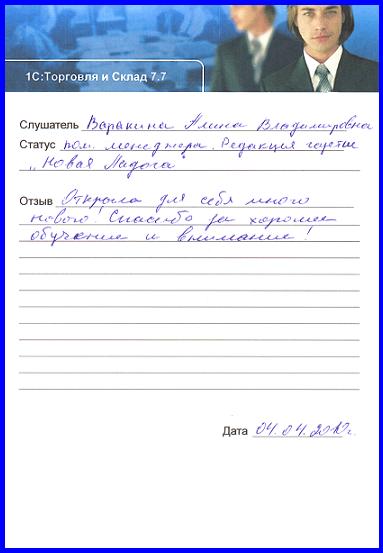 1С:Торговля и Склад 7.7
Слушатель Варакина Алина Владимировна
Статус пом. менеджера. Редакция газеты
„Новая Ладога"
Отзыв Открыла для себя много
нового! Спасибо за хорошее
обучение и внимание!
Дата 04.04.2010г.